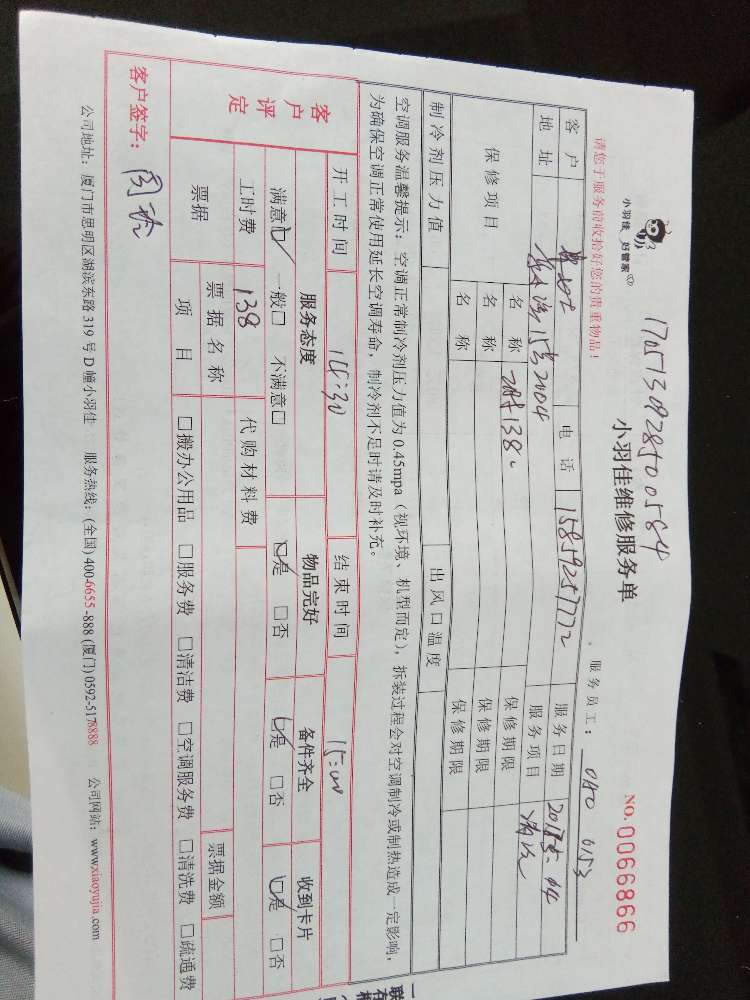 小羽佳 好管家
170513092850 0584
小羽佳维修服务单
NO. 0066866
请您于服务前收拾好您的贵重物品!
服务员工: 040 0153
客户 电话 15859257772 服务日期 2017.5.14
地址 15号2004 服务项目 清洗
保修项目 名称 138. 保修期限
名称 保修期限
名称 保修期限
制冷剂压力值 出风口温度
空调服务温馨提示:空调正常制冷剂压力值为0.45mpa(视环境、机型而定),拆装过程会对空调制冷或制热造成一定影响,
为确保空调正常使用延长空调寿命,制冷剂不足时请及时补充。
客户评定
开工时间 14:30 结束时间 15:00
服务态度 物品完好 备件齐全 收到卡片
满意☑ 一般□ 不满意□ ☑是 □否 ☑是 □否 ☑是 □否
工时费 138 代购材料费
票据 票据名称 票据金额
项目 □搬办公用品 □服务费 □清洁费 □空调服务费 □清洗费 □疏通费
客户签字:
公司地址:厦门市思明区湖滨东路319号D幢小羽佳 服务热线:(全国)400-6655-888(厦门)0592-5178888 公司网站:www.xiaoyujia.com